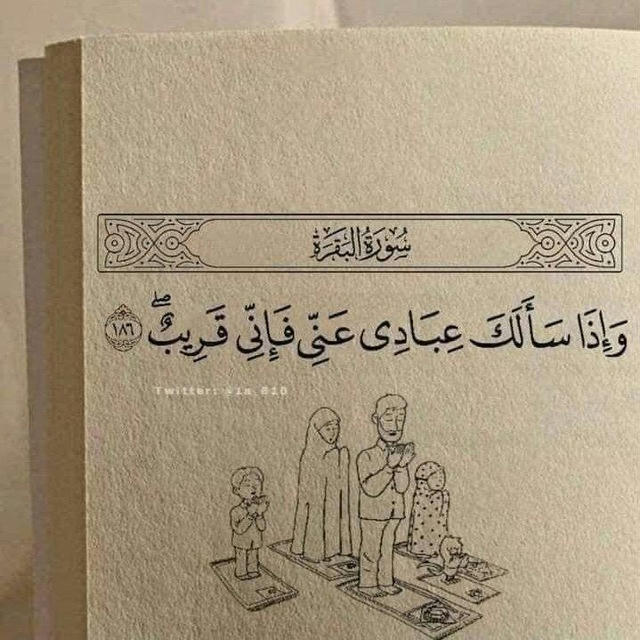 سُورَةُ البَقَرَةِ
وَإِذَا سَأَلَكَ عِبَادِى عَنِّى فَإِنِّى قَرِيبٌ ۖ ١٨٦
Twitter: